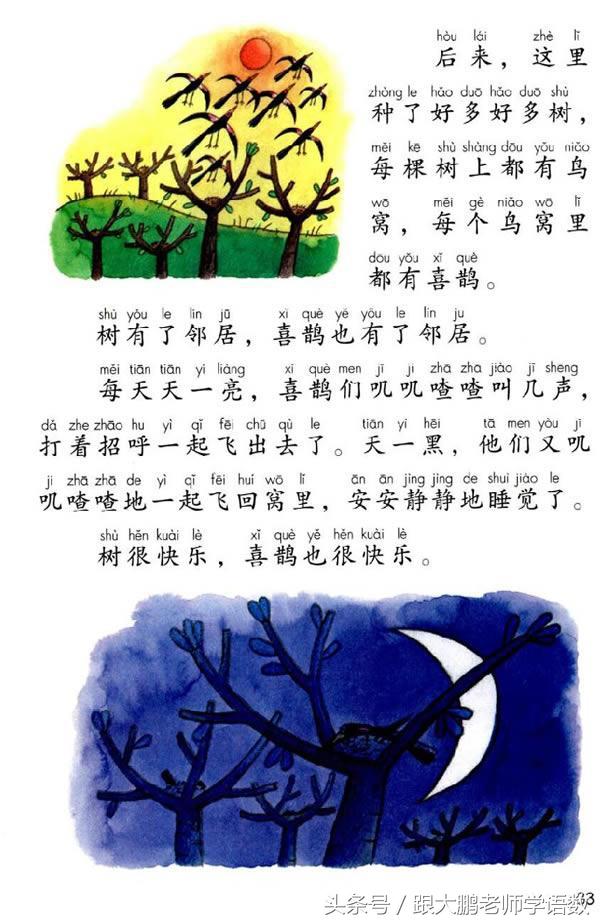 hòu lái zhè lǐ
后来，这里
zhòng le hǎo duō hǎo duō shù
种了好多好多树，
měi kē shù shàng dōu yǒu niǎo
每棵树上都有鸟
wō měi gè niǎo wō lǐ
窝，每个鸟窝里
dōu yǒu xǐ què
都有喜鹊。
shù yǒu le lín jū xǐ què yě yǒu le lín jū
树有了邻居，喜鹊也有了邻居。
měi tiān tiān yí liàng xǐ què men jī jī zhā zhā jiào jǐ shēng
每天天一亮，喜鹊们叽叽喳喳叫几声，
dǎ zhe zhāo hu yì qǐ fēi chū qù le tiān yì hēi tā men yòu jī
打着招呼一起飞出去了。天一黑，他们又叽
jī zhā zhā de yì qǐ fēi huí wō lǐ ān ān jìng jìng de shuì jiào le
叽喳喳地一起飞回窝里，安安静静地睡觉了。
shù hěn kuài lè xǐ què yě hěn kuài lè
树很快乐，喜鹊也很快乐。
头条号 / 跟大鹏老师学语数